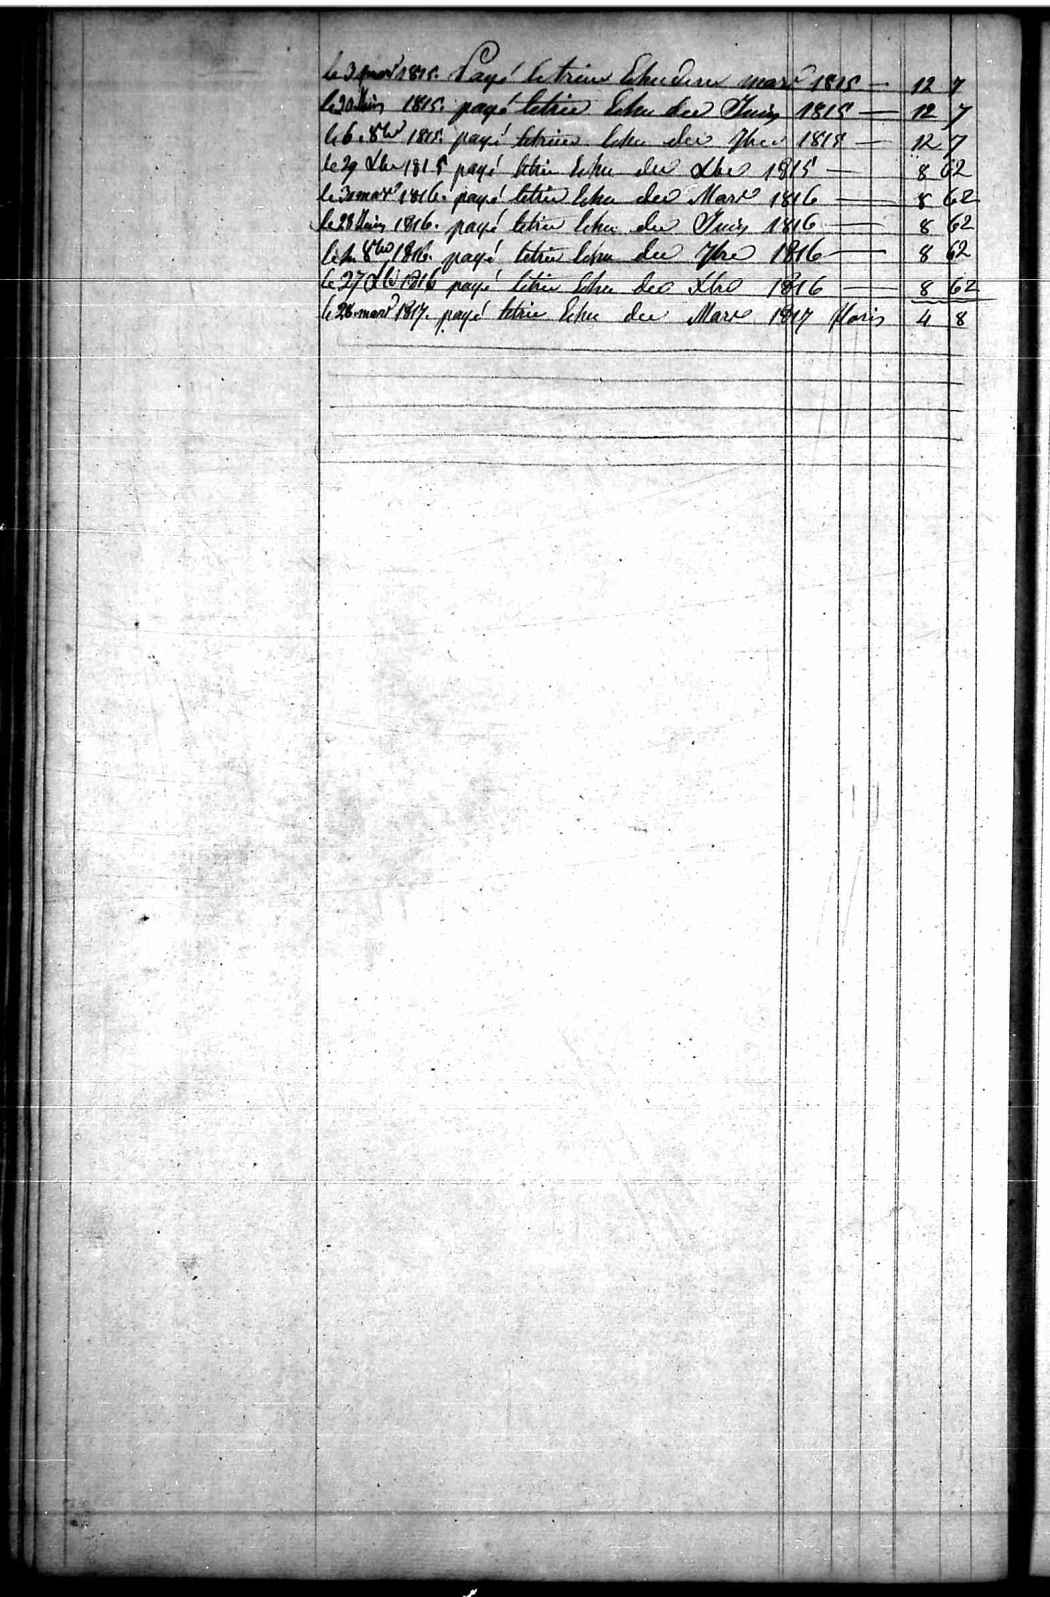 le 3 mars 1815. Payé letrim Echu den mars 1815 — 12 7
le 30 Juin 1815. payé letrim Echu deu Juin 1815 — 12 7
le 6. 8bre 1815. payé letrim Echu deu 7bre 1815 — 12 7
le 29 Xbre 1815 payé letrim Echu deu Xbre 1815 — 8 62
le 30 mars 1816. payé letrim Echu deu Mars 1816 — 8 62
le 28 Juin 1816. payé letrim Echu deu Juin 1816 — 8 62
le 1. 8bre 1816. payé letrim Echu deu 7bre 1816 — 8 62
le 27 Xbre 1816 payé letrim Echu deu Xbre 1816 — 8 62
le 28. mars 1817. payé letrim Echu deu Mars 1817 floris 4 8